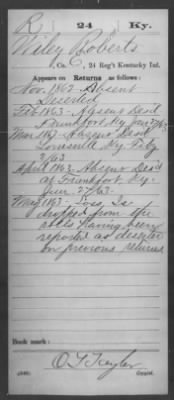 R | 24 | Ky.
Wiley Roberts
Co. C, 24 Reg't Kentucky Inf.
Appears on Returns as follows:
Nov. 1862 - Absent
Deserted
Feb 1863 - Absent Des'd
Frankfort, Ky Jan 27/63
Mar 1863 - Absent Des'd
Louisville Ky Feb
2/63
April 1863 Absent Des'd
at Frankfort, Ky.
Jan 27/63.
May 1863 - Loss, Is
dropped from the
rolls having been
reported as deserter
on previous returns
Book mark:
(546) Copyist.